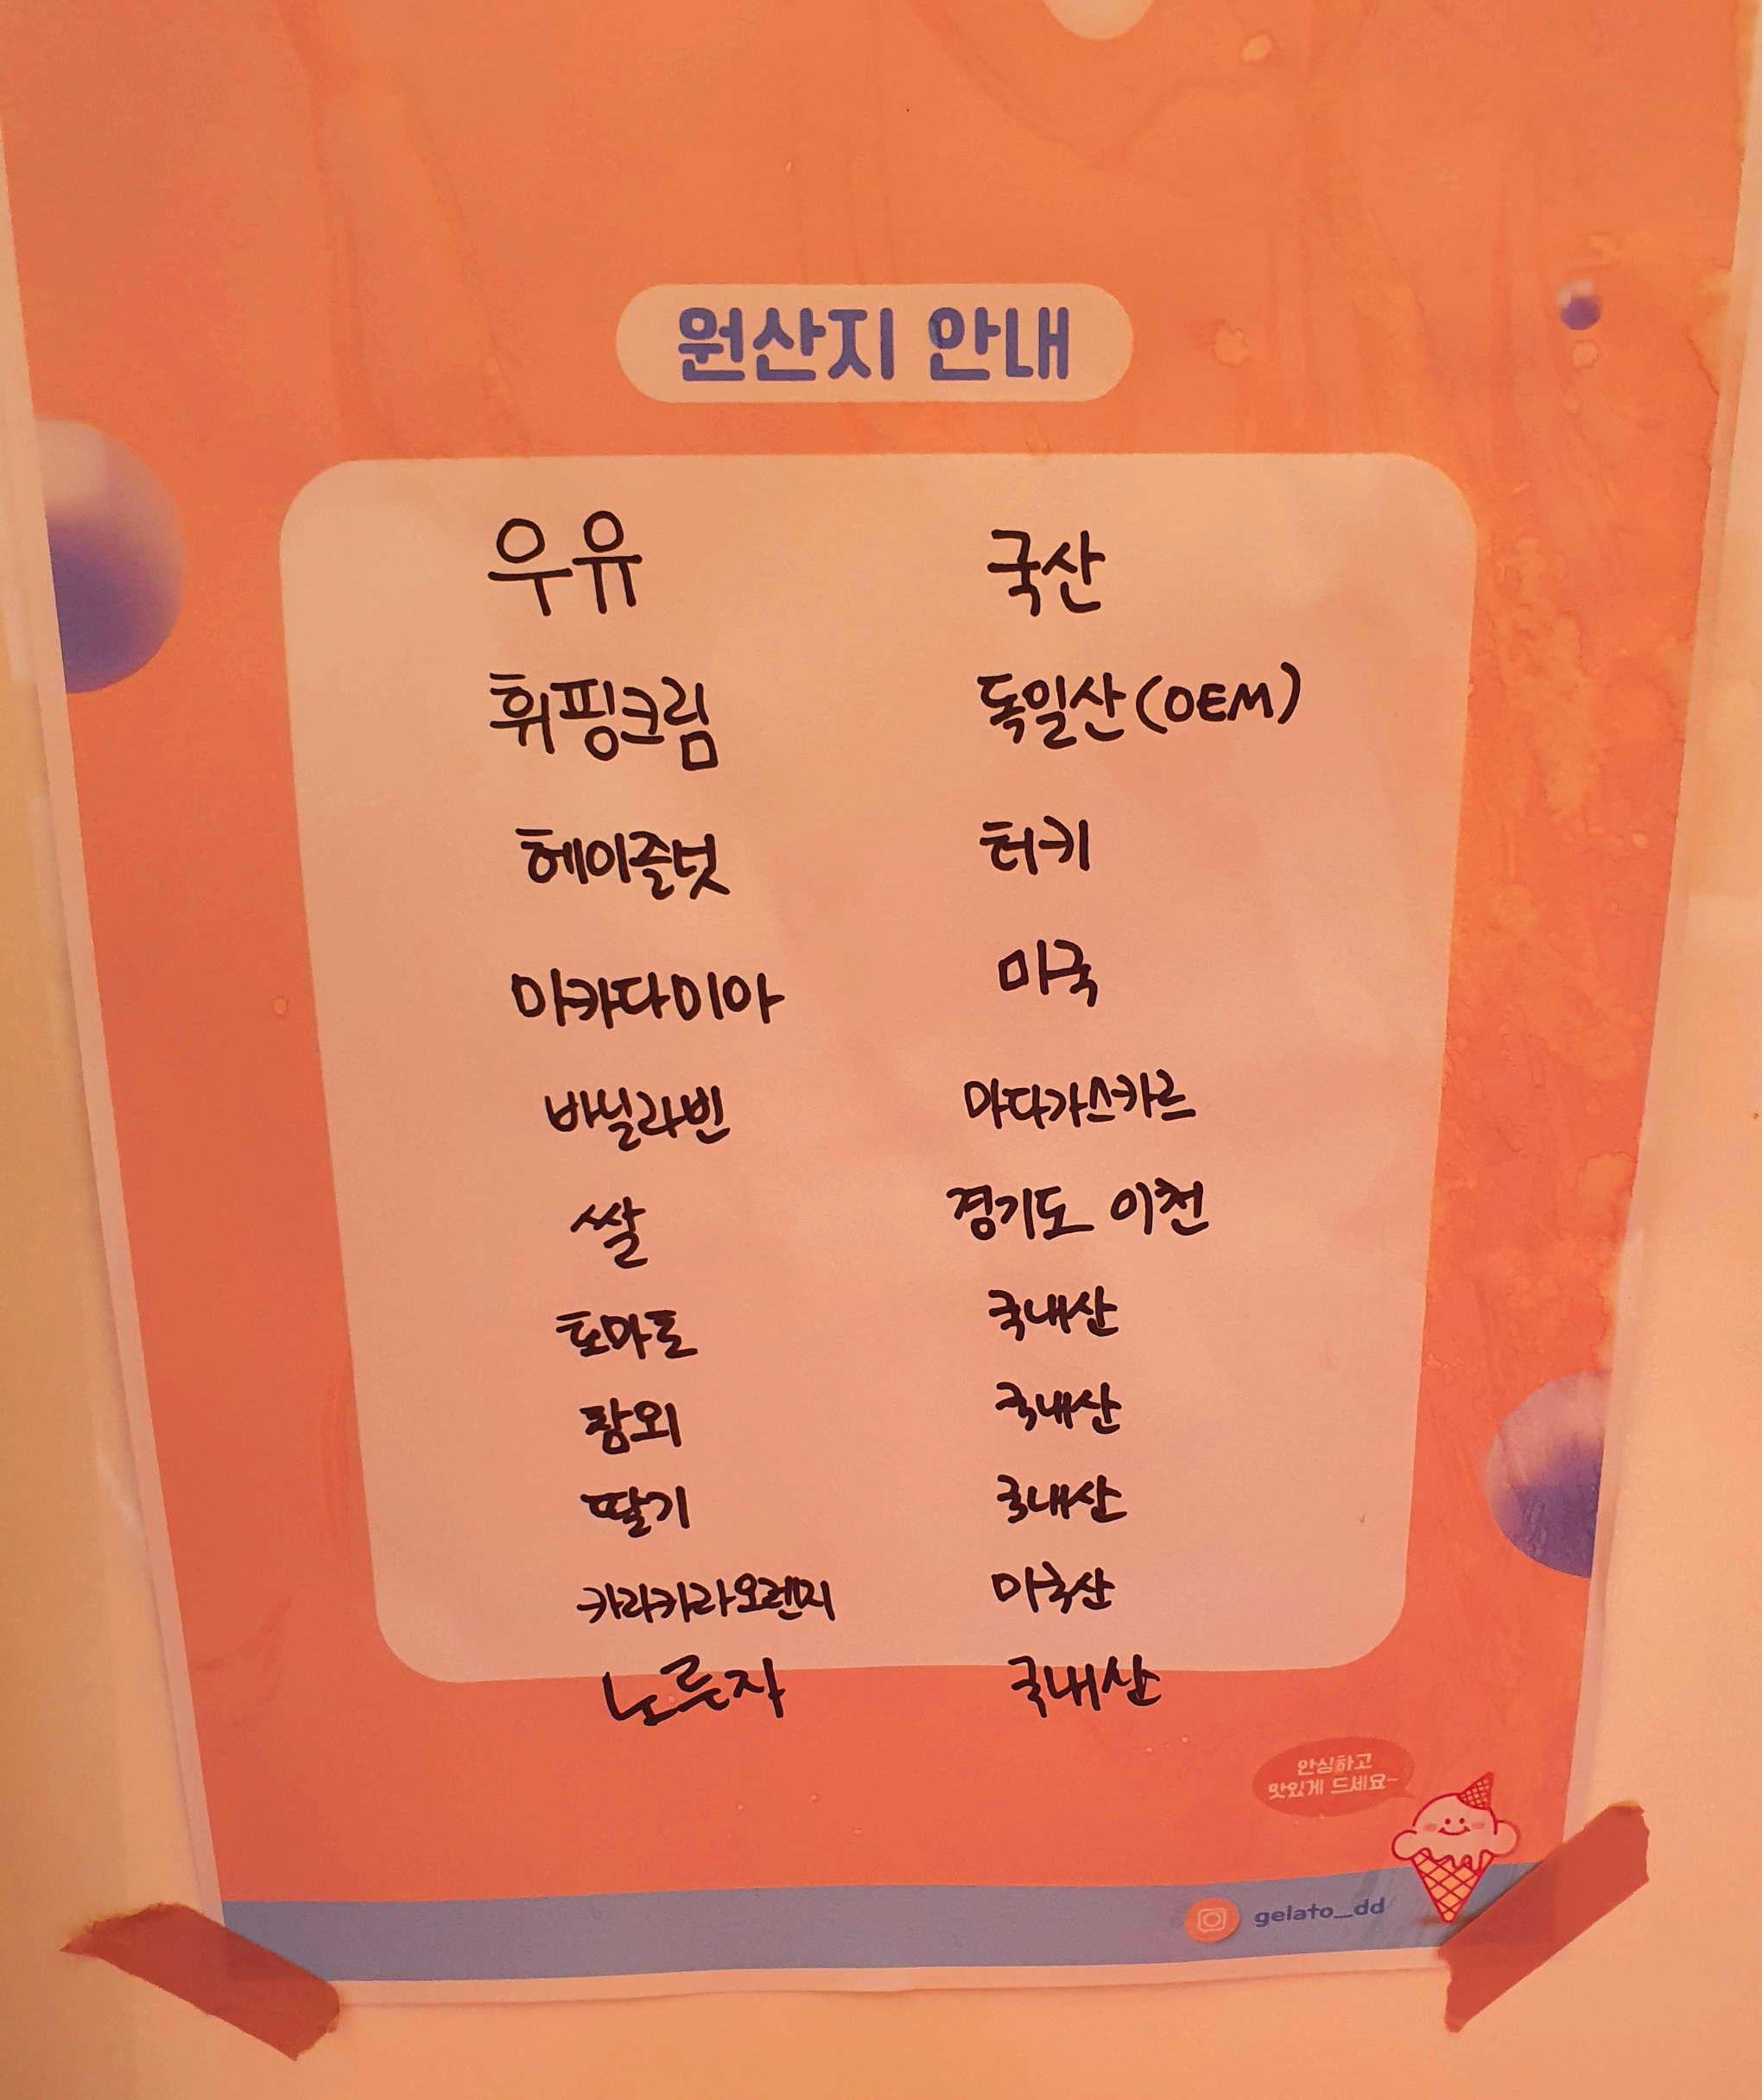 원산지 안내
우유 국산
휘핑크림 독일산(OEM)
헤이즐넛 터키
마카다미아 미국
바닐라빈 마다가스카르
쌀 경기도 이천
토마토 국내산
참외 국내산
딸기 국내산
카라카라오렌지 미국산
노루자 국내산
안심하고
맛있게 드세요~
gelato_dd